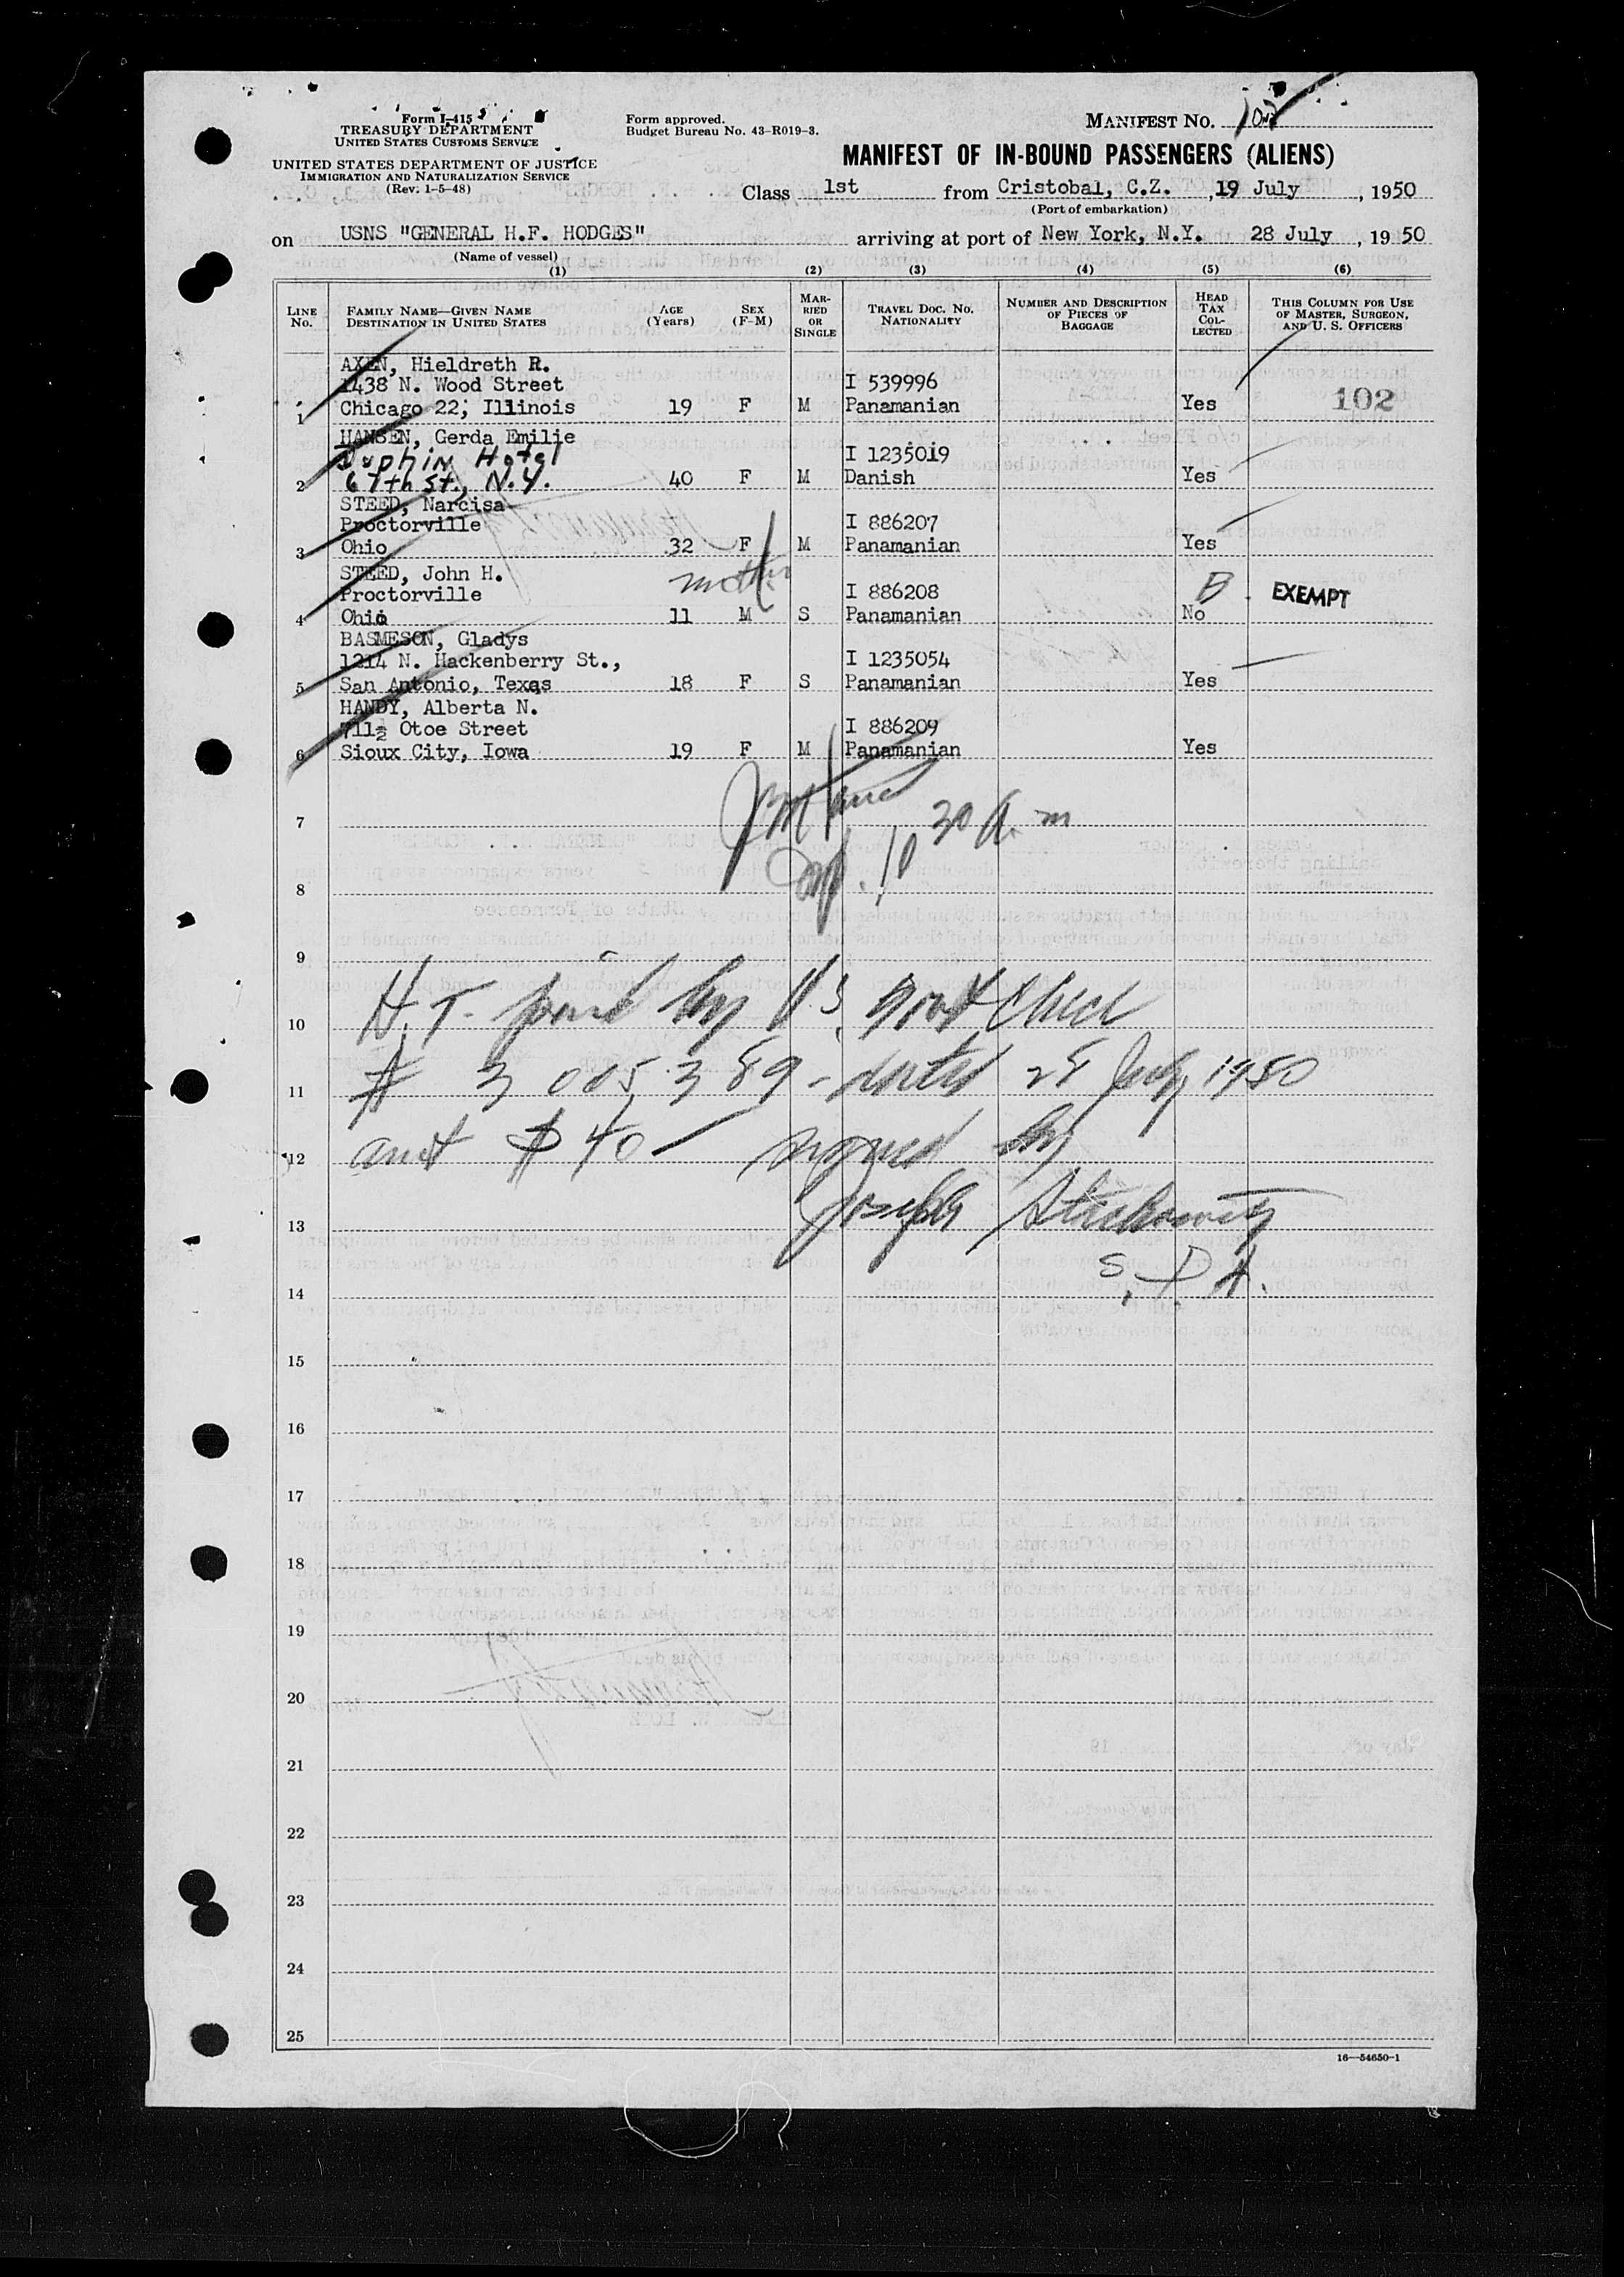 Form I-415
TREASURY DEPARTMENT
UNITED STATES CUSTOMS SERVICE
UNITED STATES DEPARTMENT OF JUSTICE
IMMIGRATION AND NATURALIZATION SERVICE
(Rev. 1-5-48)
Form approved.
Budget Bureau No. 43-R019-3.
MANIFEST NO.
MANIFEST OF IN-BOUND PASSENGERS (ALIENS)
Class 1st from Cristobal, C.Z. , 19 July , 1950
(Port of embarkation)
on USNS "GENERAL H.F. HODGES" arriving at port of New York, N.Y. 28 July , 1950
(Name of vessel)
(1) (2) (3) (4) (5) (6)
LINE NO.
FAMILY NAME—GIVEN NAME
DESTINATION IN UNITED STATES
AGE (Years)
SEX (F-M)
MARRIED OR SINGLE
TRAVEL DOC. NO. NATIONALITY
NUMBER AND DESCRIPTION OF PIECES OF BAGGAGE
HEAD TAX COLLECTED
THIS COLUMN FOR USE OF MASTER, SURGEON, AND U. S. OFFICERS
AXEN, Hieldreth R.
1438 N. Wood Street I 539996
1 Chicago 22, Illinois 19 F M Panamanian Yes 102
HANSEN, Gerda Emilie
Dophin Hotel I 1235019
2 67th St., N.Y. 40 F M Danish Yes
STEED, Narcisa
Proctorville I 886207
3 Ohio 32 F M Panamanian Yes
STEED, John H. mother
Proctorville I 886208 B EXEMPT
4 Ohio 11 M S Panamanian No
BASMESON, Gladys
1214 N. Hackenberry St., I 1235054
5 San Antonio, Texas 18 F S Panamanian Yes
HANDY, Alberta N.
711½ Otoe Street I 886209
6 Sioux City, Iowa 19 F M Panamanian Yes
7
10 30 A.m
8
9
10 H.T. paid by U.S. govt check
11 # 3 005,389 - dated 28 July, 1950
12 amt $ 40 — signed by
13 Joseph
14
15
16
17
18
19
20
21
22
23
24
25
16—54650-1